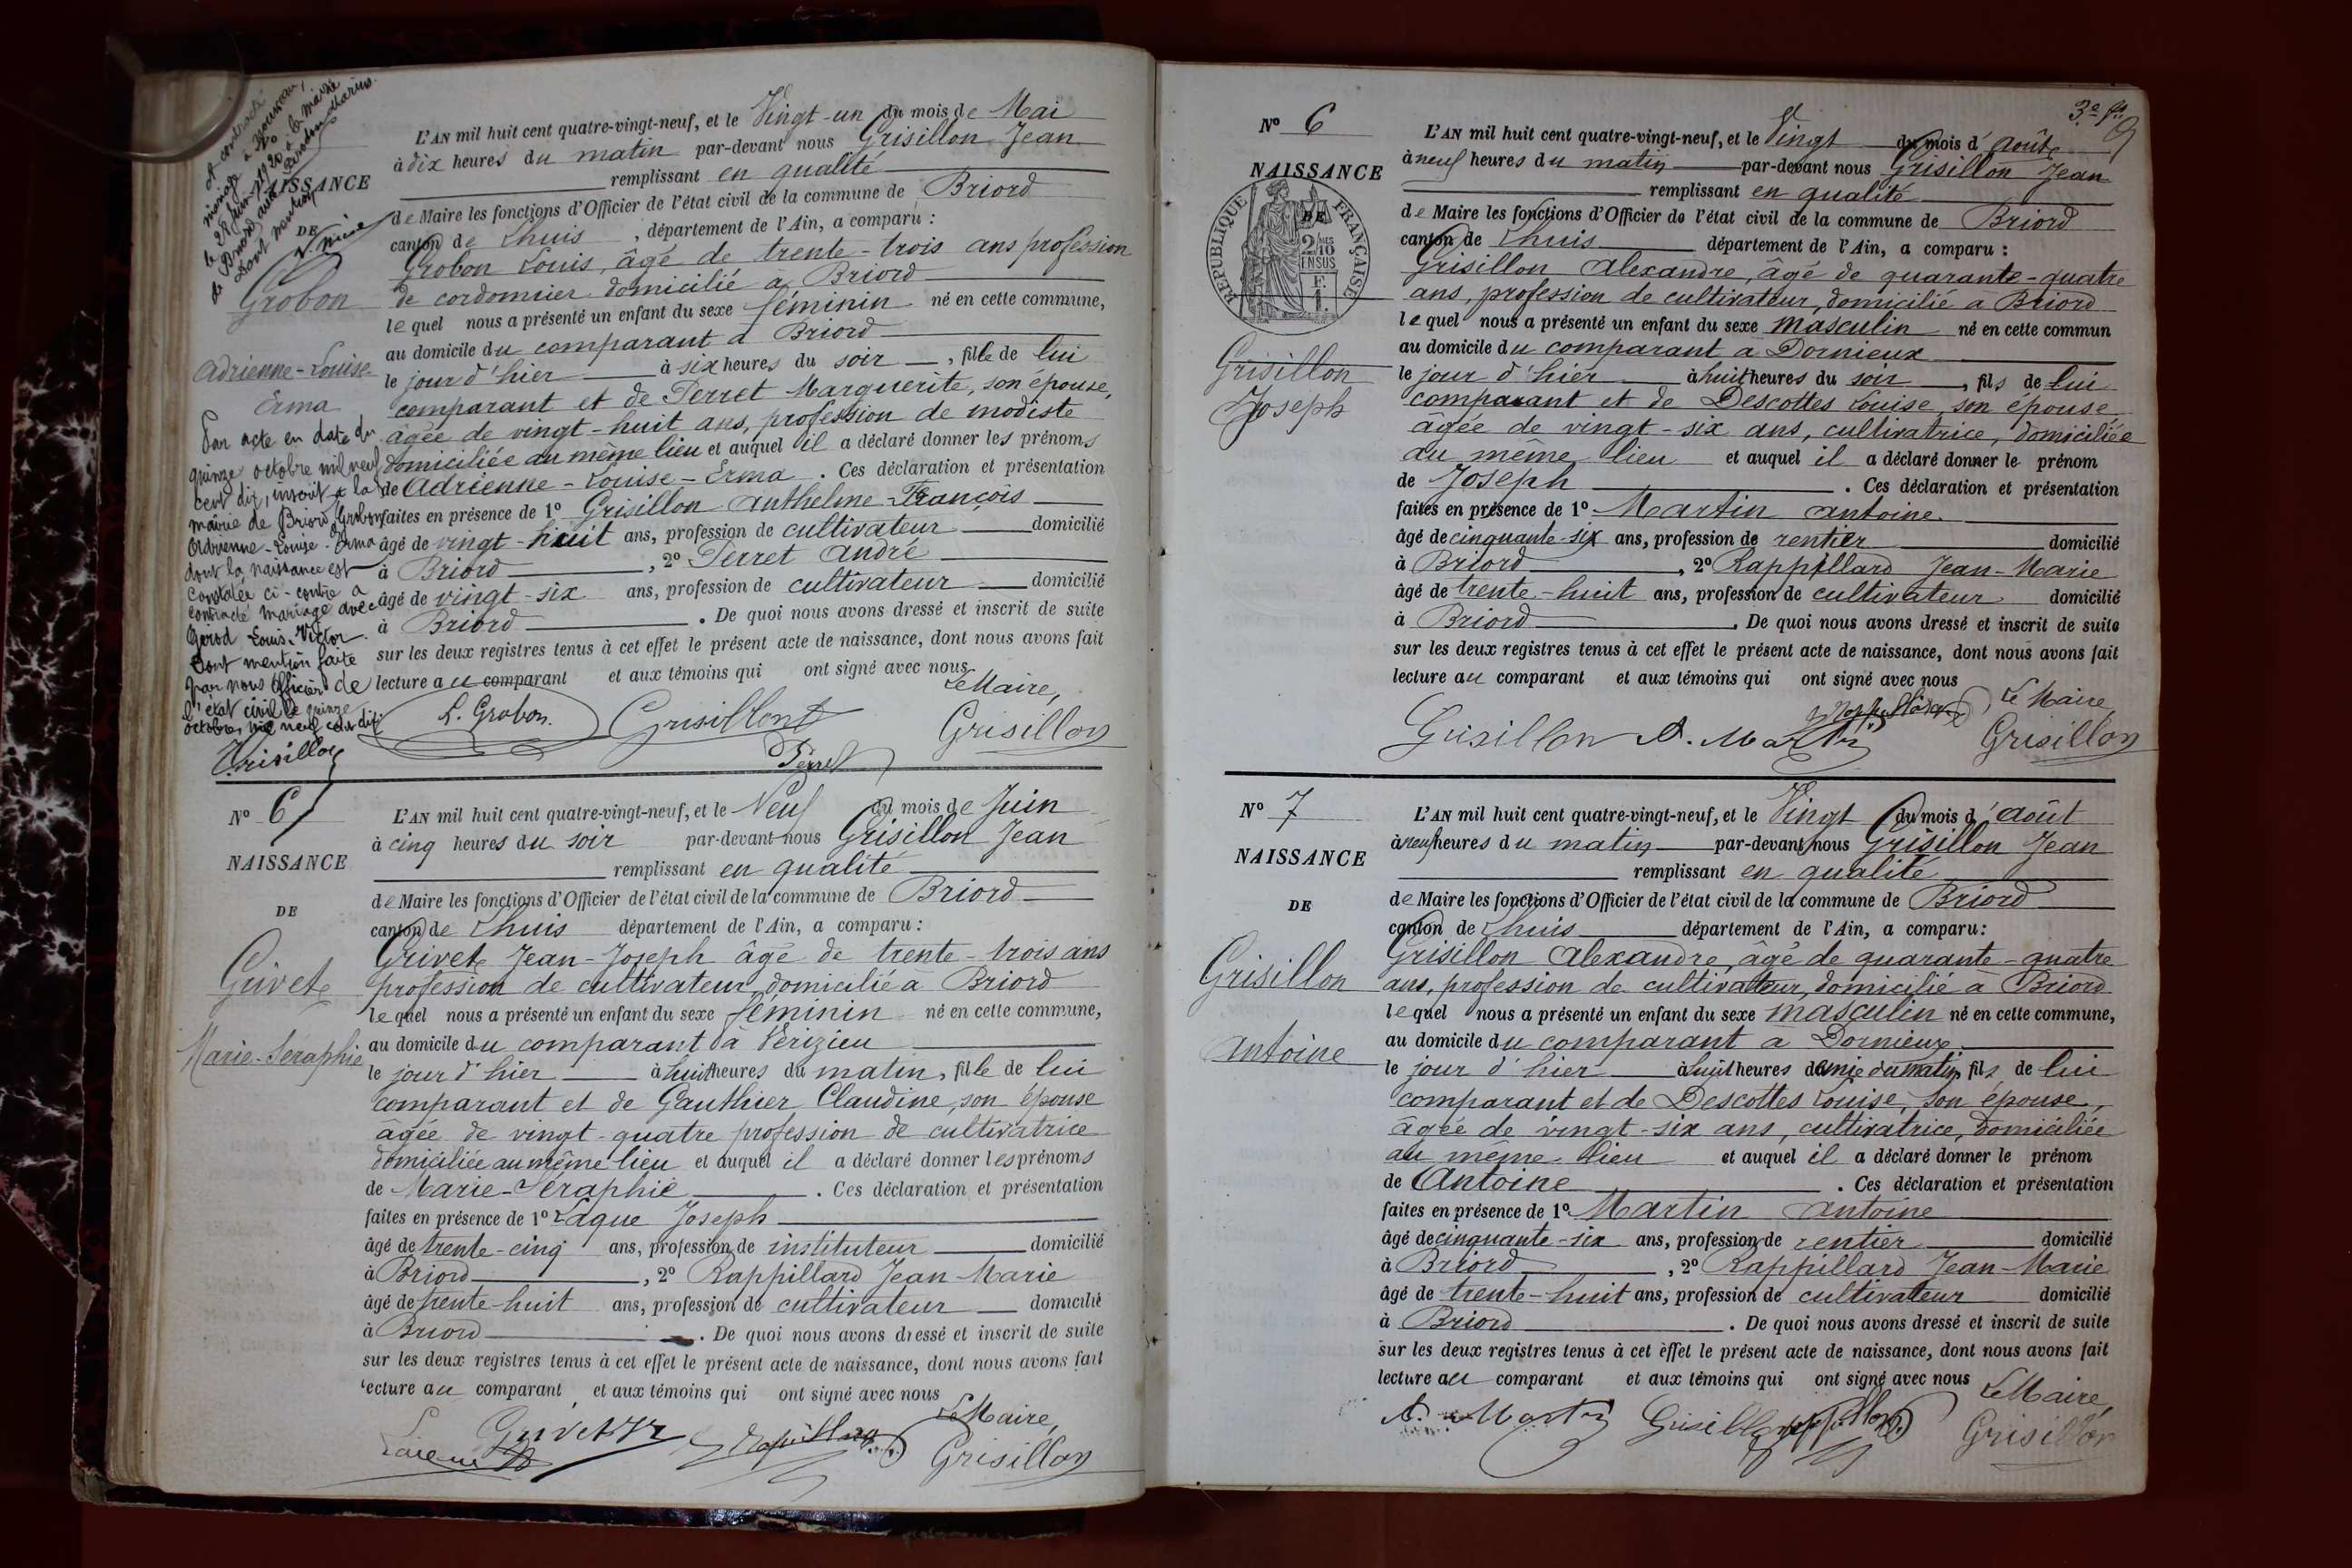 et contracté
mariage à nouveau
le 28 juin 1920 à la mairie
de Briord avec Marius
dont mention
NAISSANCE
DE
Grobon
Adrienne-Louise-
Erma
Par acte en date du
quinze octobre mil neuf
cent dix, inscrit à la
mairie de Briord, Grobon
Adrienne-Louise-Erma
dont la naissance est
constatée ci-contre a
contracté mariage avec
Louis-Victor.
Dont mention faite
par nous Officier de
l'état civil le quinze
octobre mil neuf cent dix
Grisillon
L'AN mil huit cent quatre-vingt-neuf, et le Vingt-un du mois de Mai
à dix heures du matin par-devant nous Grisillon Jean
remplissant en qualité
de Maire les fonctions d'Officier de l'état civil de la commune de Briord
canton de Lhuis, département de l'Ain, a comparu :
Grobon Louis, âgé de trente-trois ans profession
de cordonnier domicilié à Briord
lequel nous a présenté un enfant du sexe féminin né en cette commune,
au domicile du comparant à Briord
le jour d'hier à six heures du soir, fille de lui
comparant et de Perret Marguerite, son épouse,
âgée de vingt-huit ans, profession de modiste
domiciliée au même lieu et auquel il a déclaré donner les prénoms
de Adrienne-Louise-Erma. Ces déclaration et présentation
faites en présence de 1º Grisillon Anthelme-François
âgé de vingt-huit ans, profession de cultivateur domicilié
à Briord, 2º Perret André
âgé de vingt-six ans, profession de cultivateur domicilié
à Briord. De quoi nous avons dressé et inscrit de suite
sur les deux registres tenus à cet effet le présent acte de naissance, dont nous avons fait
lecture au comparant et aux témoins qui ont signé avec nous
Le Maire,
L. Grobon. Grisillon Grisillon
Perret
Nº 6
NAISSANCE
DE
Grivet
Marie-Seraphie
L'AN mil huit cent quatre-vingt-neuf, et le Neuf du mois de Juin
à cinq heures du soir par-devant nous Grisillon Jean
remplissant en qualité
de Maire les fonctions d'Officier de l'état civil de la commune de Briord
canton de Lhuis département de l'Ain, a comparu :
Grivet Jean-Joseph âgé de trente-trois ans
profession de cultivateur, domicilié à Briord
lequel nous a présenté un enfant du sexe féminin né en cette commune,
au domicile du comparant à Vérizieu
le jour d'hier à huit heures du matin, fille de lui
comparant et de Gauthier Claudine, son épouse
âgée de vingt-quatre profession de cultivatrice
domiciliée au même lieu et auquel il a déclaré donner les prénoms
de Marie-Séraphie. Ces déclaration et présentation
faites en présence de 1º Laque Joseph
âgé de trente-cinq ans, profession de instituteur domicilié
à Briord, 2º Rappillard Jean-Marie
âgé de trente-huit ans, profession de cultivateur domicilié
à Briord. De quoi nous avons dressé et inscrit de suite
sur les deux registres tenus à cet effet le présent acte de naissance, dont nous avons fait
lecture au comparant et aux témoins qui ont signé avec nous
Le Maire,
Grivet Rappillard Grisillon
3e fet
Nº 6
NAISSANCE
DE
RÉPUBLIQUE FRANÇAISE
2/10 EN SUS
F. 1.
Grisillon
Joseph
L'AN mil huit cent quatre-vingt-neuf, et le Vingt du mois d'août
à neuf heures du matin par-devant nous Grisillon Jean
remplissant en qualité
de Maire les fonctions d'Officier de l'état civil de la commune de Briord
canton de Lhuis département de l'Ain, a comparu :
Grisillon Alexandre, âgé de quarante-quatre
ans, profession de cultivateur, domicilié à Briord
lequel nous a présenté un enfant du sexe masculin né en cette commun
au domicile du comparant à Dornieux
le jour d'hier à huit heures du soir, fils de lui
comparant et de Descottes Louise, son épouse
âgée de vingt-six ans, cultivatrice, domiciliée
au même lieu et auquel il a déclaré donner le prénom
de Joseph. Ces déclaration et présentation
faites en présence de 1º Martin Antoine
âgé de cinquante-six ans, profession de rentier domicilié
à Briord, 2º Rappillard Jean-Marie
âgé de trente-huit ans, profession de cultivateur domicilié
à Briord. De quoi nous avons dressé et inscrit de suite
sur les deux registres tenus à cet effet le présent acte de naissance, dont nous avons fait
lecture au comparant et aux témoins qui ont signé avec nous
Le Maire,
Grisillon A. Martin Rappillard Grisillon
Nº 7
NAISSANCE
DE
Grisillon
Antoine
L'AN mil huit cent quatre-vingt-neuf, et le Vingt du mois d'août
à neuf heures du matin par-devant nous Grisillon Jean
remplissant en qualité
de Maire les fonctions d'Officier de l'état civil de la commune de Briord
canton de Lhuis département de l'Ain, a comparu :
Grisillon Alexandre, âgé de quarante-quatre
ans, profession de cultivateur, domicilié à Briord
lequel nous a présenté un enfant du sexe masculin né en cette commune,
au domicile du comparant à Dornieux
le jour d'hier à huit heures demie du matin, fils de lui
comparant et de Descottes Louise, son épouse,
âgée de vingt-six ans, cultivatrice, domiciliée
au même lieu et auquel il a déclaré donner le prénom
de Antoine. Ces déclaration et présentation
faites en présence de 1º Martin Antoine
âgé de cinquante-six ans, profession de rentier domicilié
à Briord, 2º Rappillard Jean-Marie
âgé de trente-huit ans, profession de cultivateur domicilié
à Briord. De quoi nous avons dressé et inscrit de suite
sur les deux registres tenus à cet effet le présent acte de naissance, dont nous avons fait
lecture au comparant et aux témoins qui ont signé avec nous
Le Maire,
A. Martin Grisillon Rappillard Grisillon